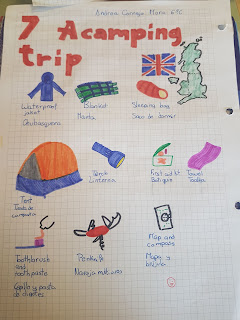 7 A camping
trip
Waterproof
jacket
Chubasquero
Blanket
Manta
Sleeping bag
Saco de dormir
Tent
Tienda de
campaña
Torch
Linterna
First aid kit
Botiquín
Towel
Toalla
Toothbrush
and
toothpaste
Cepillo y pasta
de dientes
Penknife
Navaja multiusos
Map and
compass
Mapa y
brújula